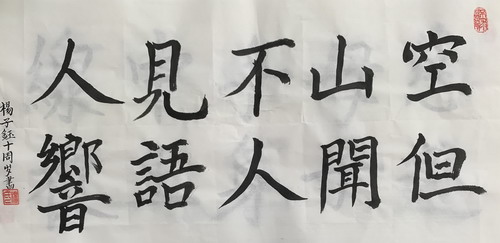 空山不見人
但聞人語響
楊子鈺十周岁書